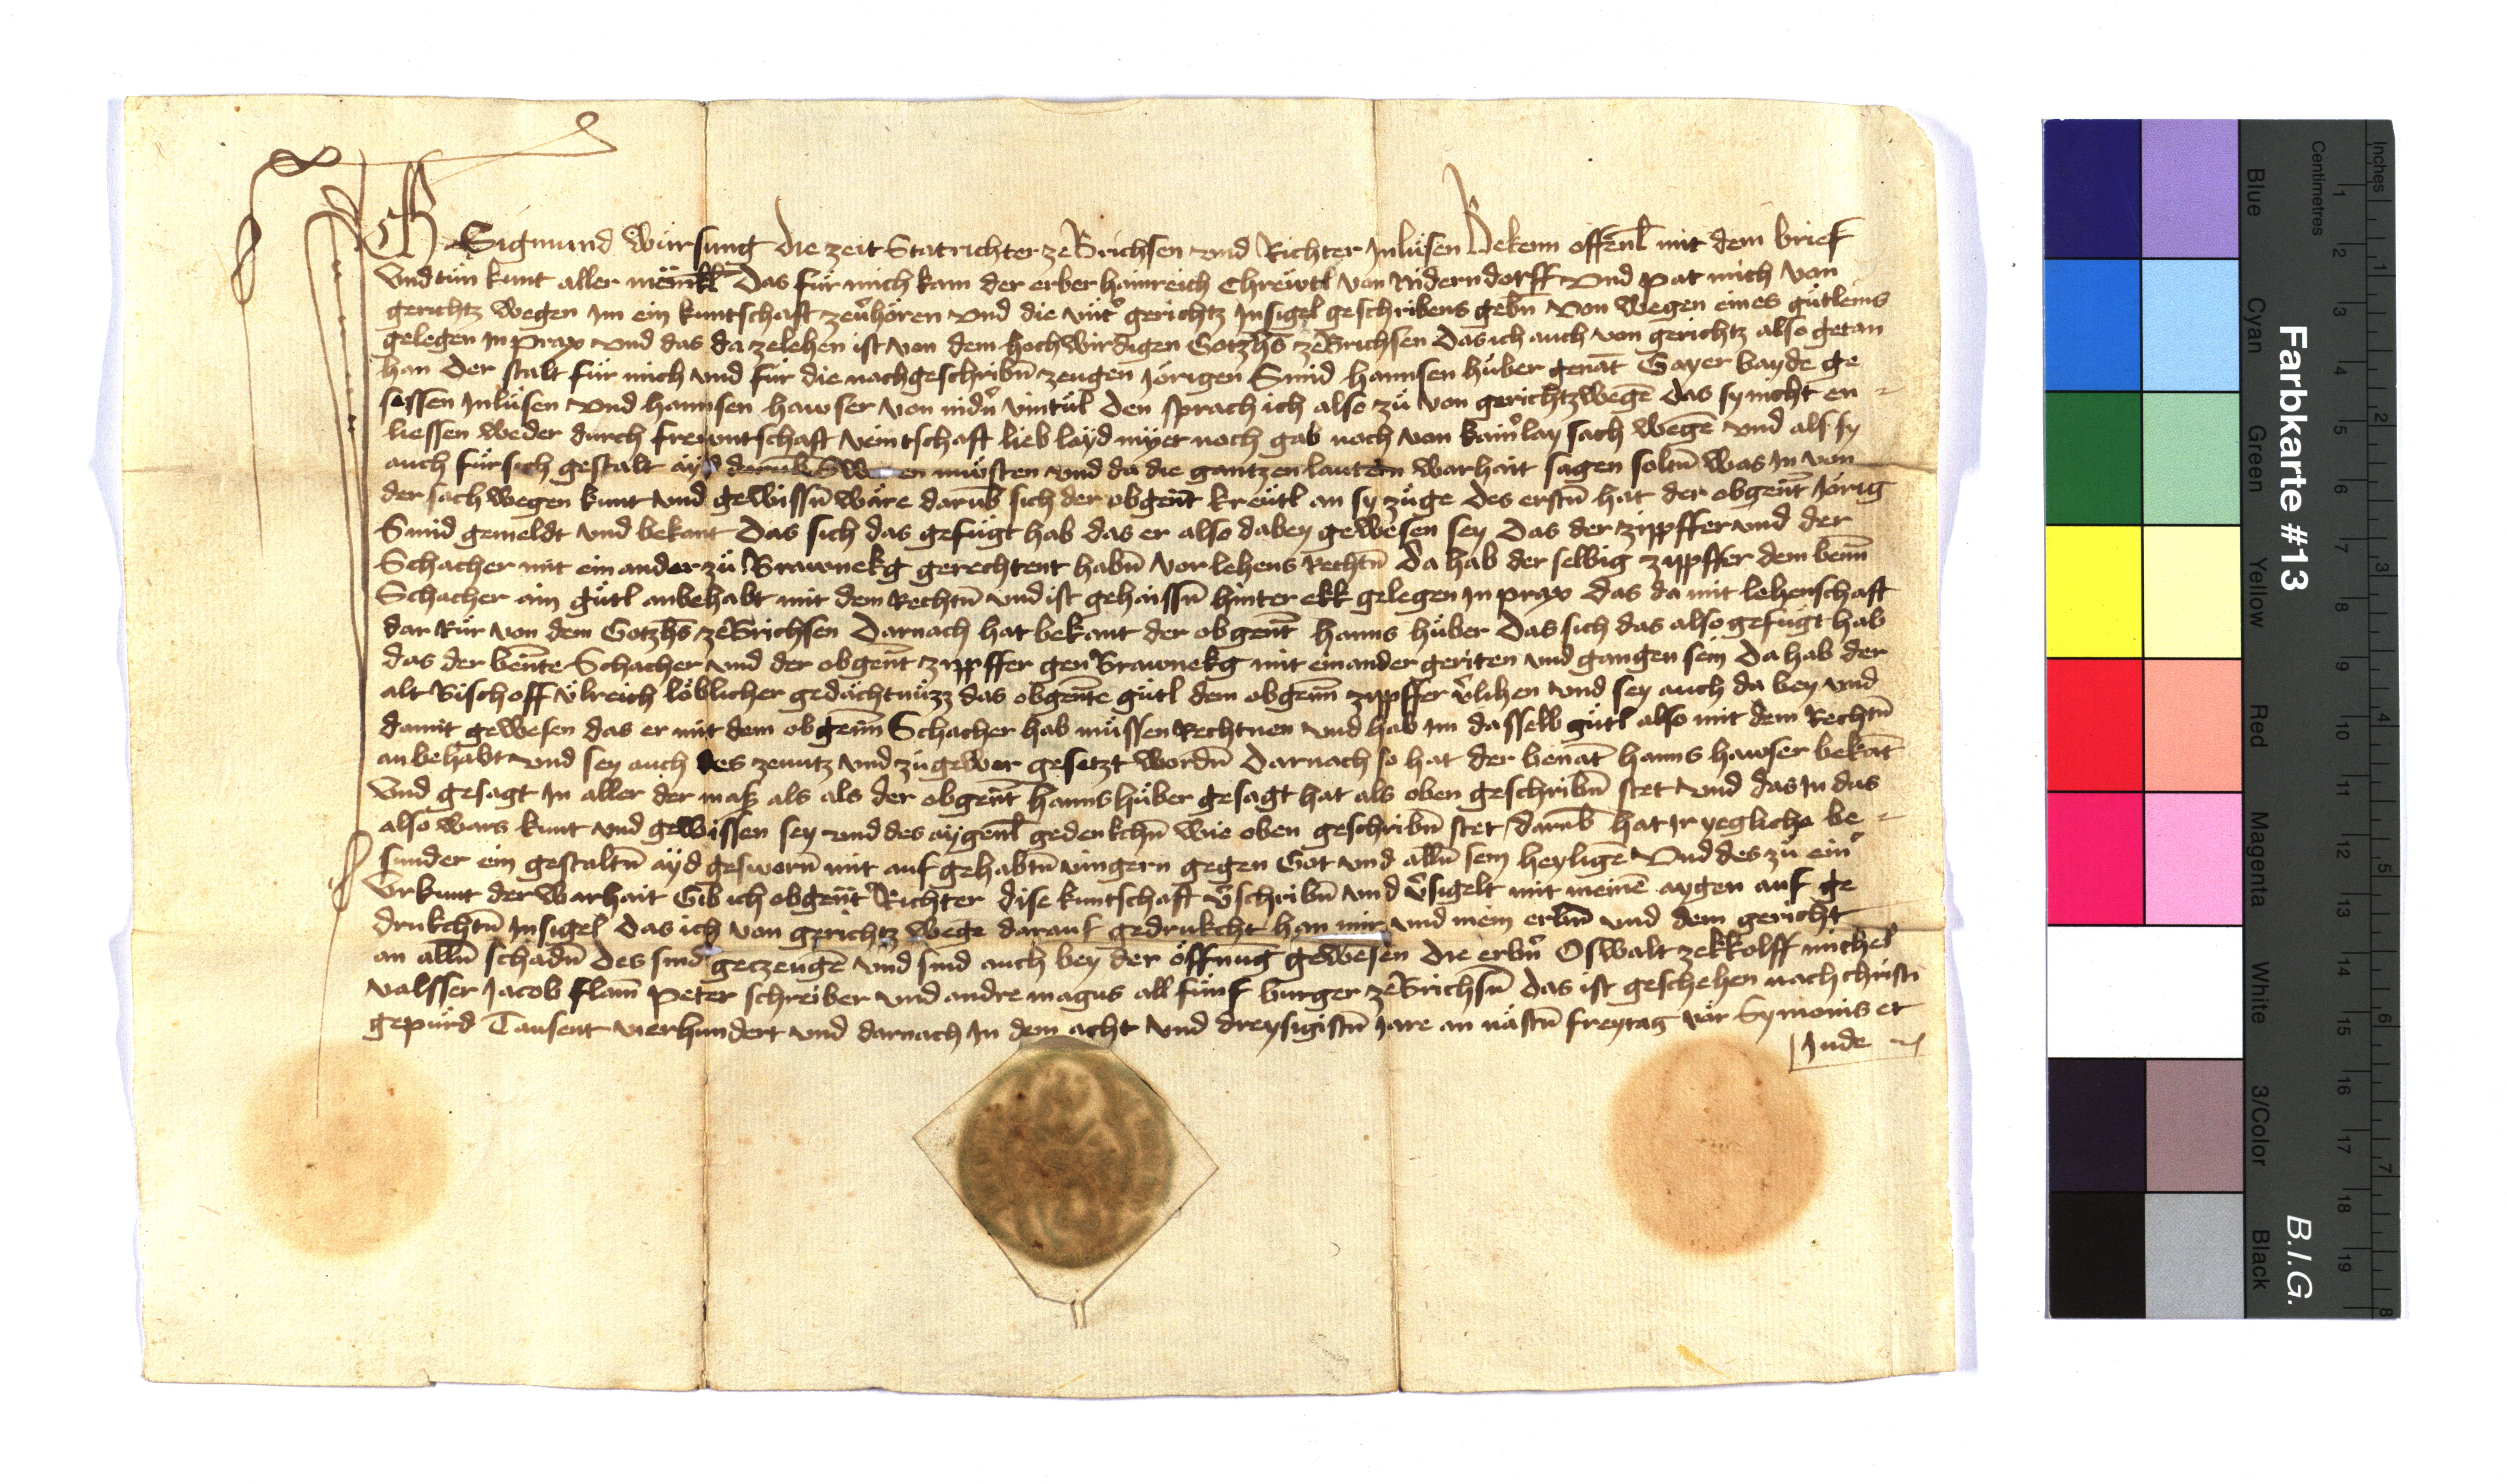 Ich Sigmund Würsung die zeit Statrichter ze Brichsen und Richter In lüsen Bekenn offenl̄ mit dem brief
Und tün kunt aller mënikl̄ Das für mich kam der erber hainreich Chrewtl von Nidern dorff Und pat mich von
gerichtz wegen Im ein kuntschaft ze v̾hören und die unt̾ gerichtz Insigel geschribens gebn̄ Von wegen eines gütleins
gelegen In prax und das da ze lehen ist von dem hochwirdigen Gotzhs̄ ze Brichsen Das ich auch von gerichtz also getan
han Der stalt für mich und für die nachgeschribn̄ zeugen Jörigen Smid hannsen hüber genāt Gayer bayde ge
sessen In lüsen und hannsen hawser von nidn̾ vintül Den sprach ich also zü von gerichtz wegē das sy nicht en-
liessen weder durch frewntschaft veintschaft lieb layd myet noch gab noch von kain̾lay sach wegē und als sy
auch für sich gestalt ayd darūb müosten und da die gantzen lautern warhait sagen soltn̄ was In von
der sach wegen kunt und gewissn̄ wäre darūb sich der obgen̄t kreütl an sy züge Des erstn̄ hat der obgen̄t Jörig
Smid gemeldt und bekant Das sich das gefügt hab das er also dabey gewesen sey Das der zippffer und der
Schacher mit ein ander zü Brawnekg gerechtent habn̄ Vor lehens Rechtn̄ Da hab der selbig zippffer dem benn̄
Schacher ain gütl anbehabt mit dem Rechtn̄ und ist gehaissn̄ hinter ekk gelegen In prax das da mit lehenschaft
dar Rür von dem Gotzhs̄ ze Brichsen Darnach hat bekant der obgen̄t hanns hüber Das sich das also gefügt hab
das der ben̄te Schacher und der obgen̄t zippffer gen Brawnekg mit einander geriten und gangen sein Da hab der
alt Bischoff Ülreich löblicher gedächtnüzz das obgen̄te gütl dem obgenn̄ zippffer v̾lihen und sey auch da bey und
damit gewesen das er mit dem obgenn̄ Schacher hab müssen Rechtnen und hab Im dasselb gütl also mit dem Rechtn̄
an behabt und sey auch des ze nutz und zü gewer gesetzt wordn̄ Darnach so hat der benāt hanns hawser bekāt
Und gesagt In aller der mass als als der obgen̄t hanns hüber gesagt hat als oben geschribn̄ stet und das In das
also wars kunt und gewissen sey und des aygenl̄ gedenkchn̄ wie oben geschribn̄ stet / darūb hat Ir yeglicher be-
sunder ein gestaltn̄ ayd gesworn̄ mit auf gehabtn̄ vingern gegen Got und alln̄ sein heyligē Und des zü ein̾
Urkunt der warhait Gib ich obgen̄t Richter dise kuntschaft v̾schribn̄ und v̾sigelt mit meinē aygen auf ge
drukchtn̄ Insigel das ich von gerichtz wegē darauf gedrukcht han mir und mein erbn̄ und dem gericht
an alln̄ schadn̄ Des sind geczeugē und sind auch bey der öffnūg gewesen Die erbn̾ Oswalt zekkolff michel
valsser Jacob flam̄ Peter schreiber und andre magus all fünf burger ze Brichsn̄ Das ist geschehen nach christi
gepürd Tausent vierhundert und darnach In dem acht und dreysigistn̄ Jare an nästn̄ freytag vor Symonis et
Jude
Farbkarte #13
B.I.G.
Inches
Centimetres
1 2 3 4 5 6 7 8 9 10 11 12 13 14 15 16 17 18 19
1 2 3 4 5 6 7 8
Blue
Cyan
Green
Yellow
Red
Magenta
White
3/Color
Black